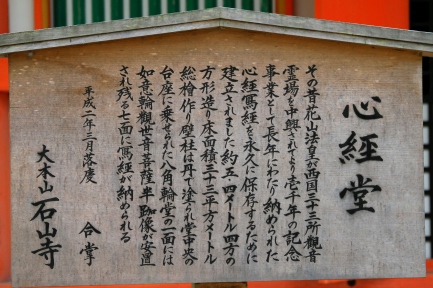 心経堂
その昔花山法皇が西国三十三所観音
霊場を中興されより壱千年の記念
事業として長年にわたり納められた
心経写経を永久に保存するために
建立されました約五・四メートル四方の
方形造り床面積三十三平方メートル
総桧作り壁柱は丹で塗られ堂中央の
台座に乗せられた八角輪堂の一面には
如意輪観世音菩薩半跏像が安置
され残る七面に写経が納められる
平成二年三月落慶
合掌
大本山石山寺